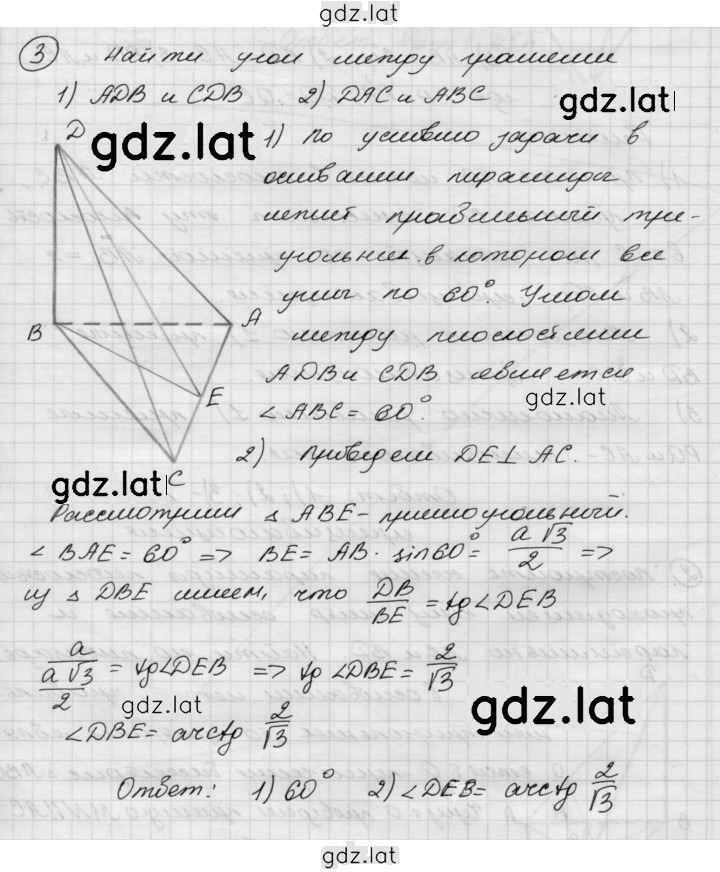 gdz.lat
3 Найти угол между гранями
1) ADB и CDB 2) DAC и ABC
gdz.lat
D
gdz.lat
1) по условию задачи в
основании пирамиды
лежит правильный тре-
угольник в котором все
углы по 60°. Углом
B
A
между плоскостями
ADB и CDB является
E
gdz.lat
∠ABC = 60°.
2) проведем DE⊥AC.
C
gdz.lat
Рассмотрим △ABE - прямоугольный.
∠BAE = 60° => BE = AB · sin60° = a√3/2 =>
из △DBE имеем, что DB/BE = tg∠DEB
a/(a√3/2) = tg∠DEB => tg∠DBE = 2/√3
gdz.lat
gdz.lat
∠DBE = arctg 2/√3
Ответ: 1) 60° 2) ∠DEB = arctg 2/√3
gdz.lat